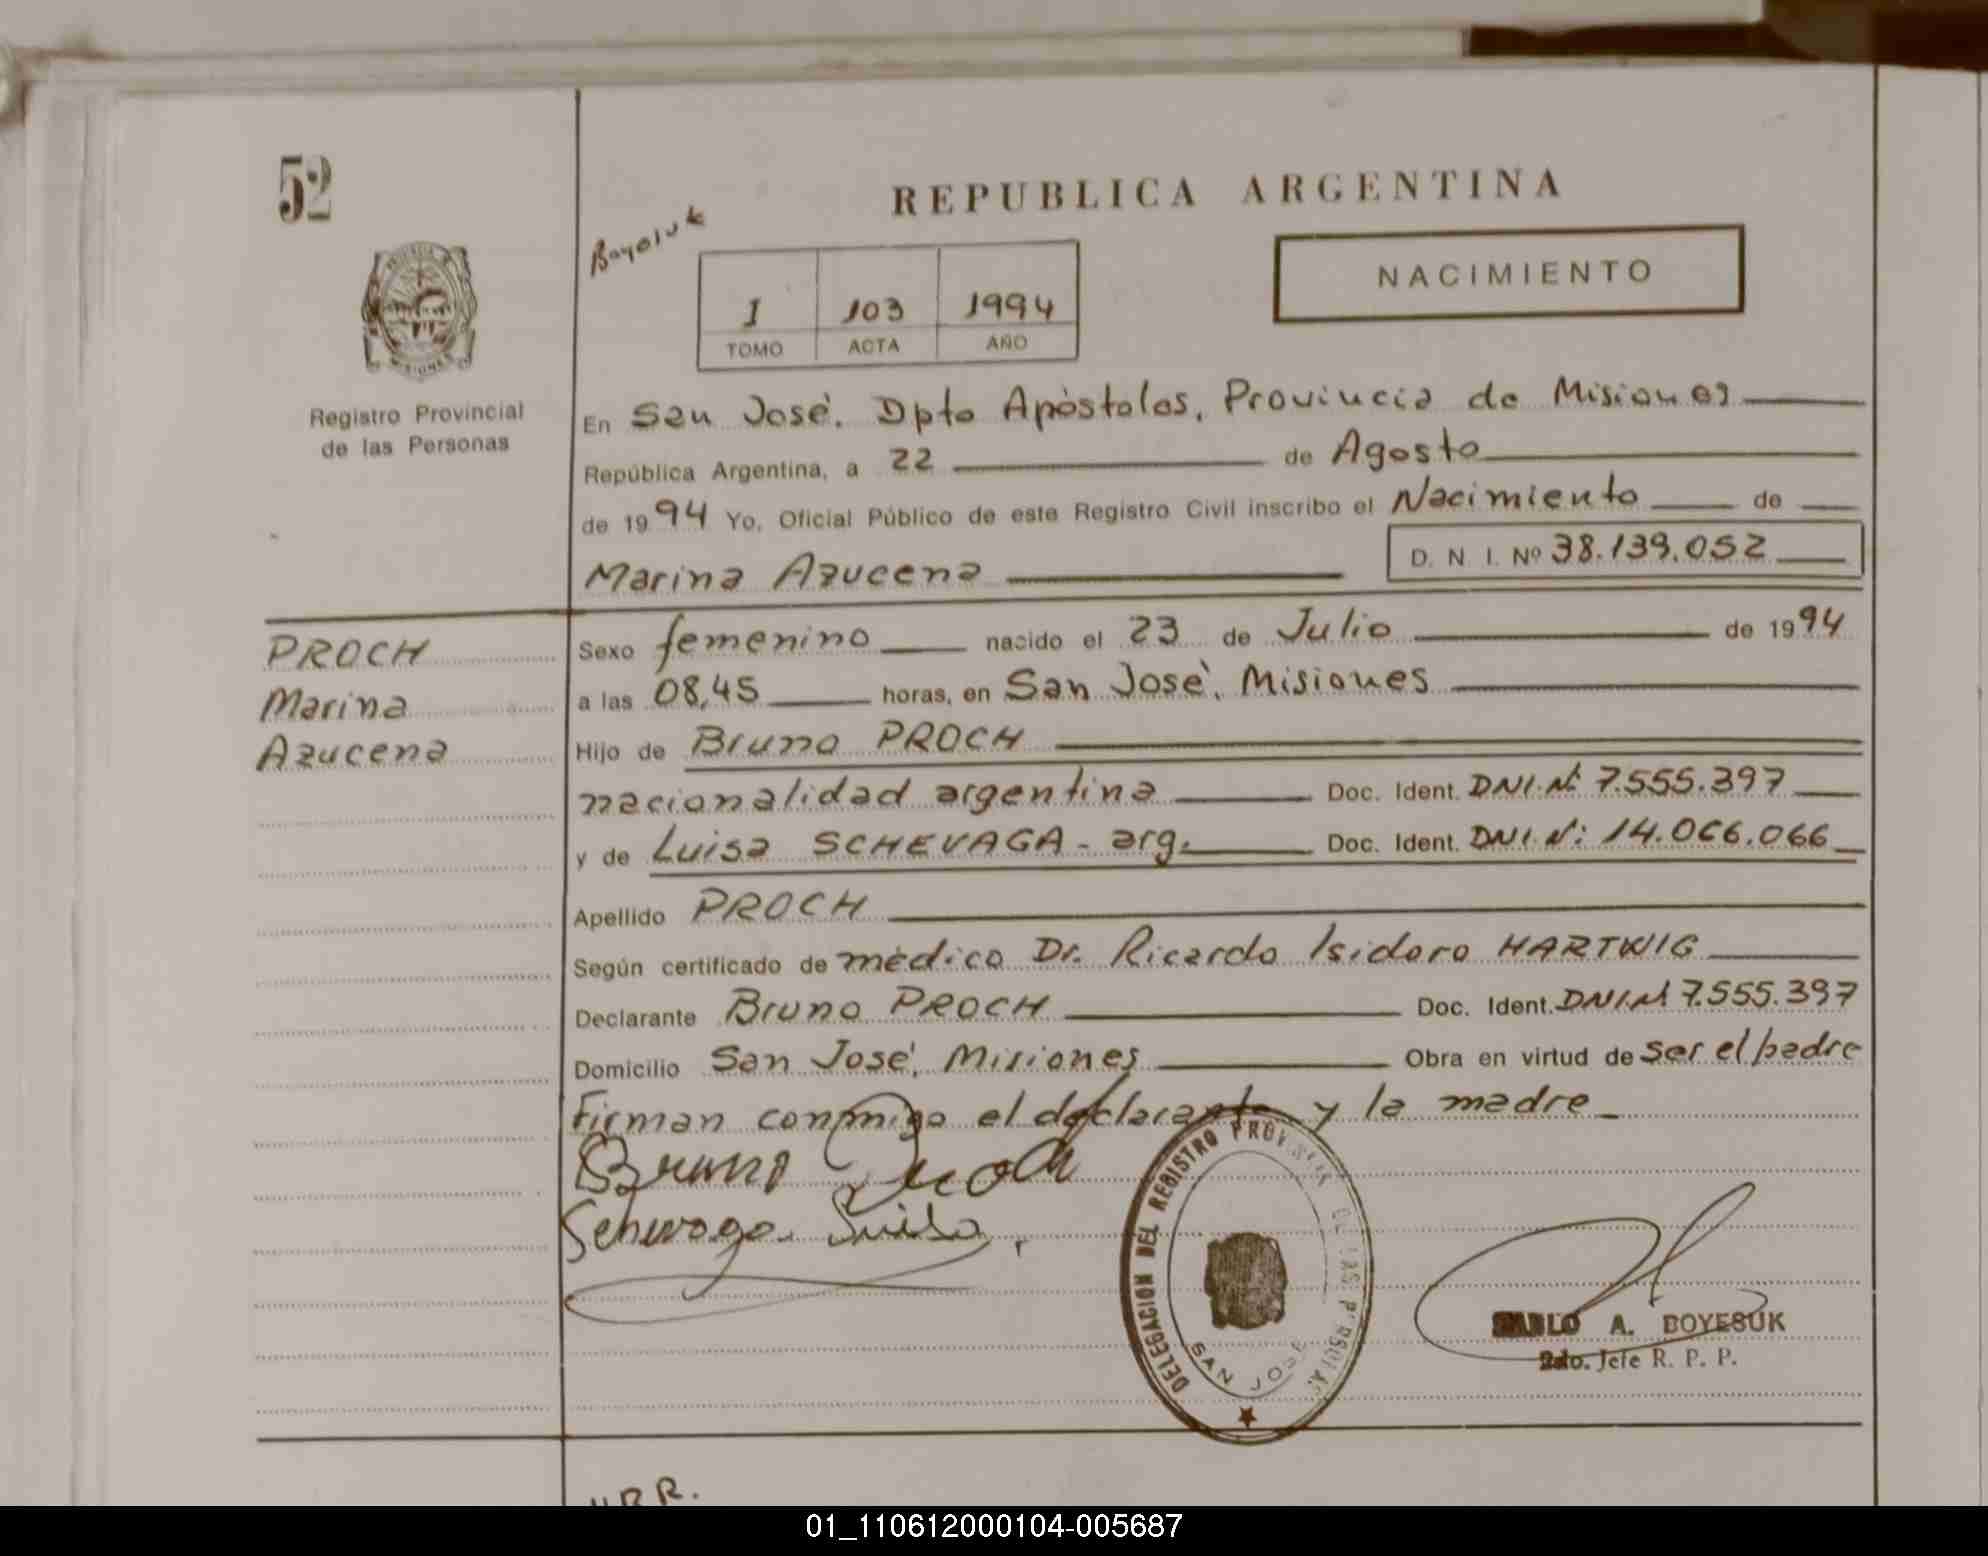 52
REPUBLICA ARGENTINA
NACIMIENTO
I 103 1994
TOMO ACTA AÑO
Registro Provincial
de las Personas
En San José. Dpto Apóstoles, Provincia de Misiones
República Argentina, a 22 de Agosto
de 1994 Yo, Oficial Público de este Registro Civil inscribo el Nacimiento de
Marina Azucena D. N. I. Nº 38.139.052
PROCH
Marina
Azucena
Sexo femenino nacido el 23 de Julio de 1994
a las 08,45 horas, en San José, Misiones
Hijo de Bruno PROCH
nacionalidad argentina Doc. Ident. DNI. Nº 7.555.397
y de Luisa SCHEVAGA - arg. Doc. Ident. DNI. Nº: 14.066.066
Apellido PROCH
Según certificado de médico Dr. Ricardo Isidoro HARTWIG
Declarante Bruno PROCH Doc. Ident. DNI.Nº 7.555.397
Domicilio San José, Misiones Obra en virtud de ser el padre
Firman conmigo el declarante y la madre
Bruno Proch
Luisa
DELEGACION DEL REGISTRO PROVINCIAL DE LAS PERSONAS
SAN JOSE
PABLO A. BOYESUK
2do. Jefe R. P. P.
01_110612000104-005687